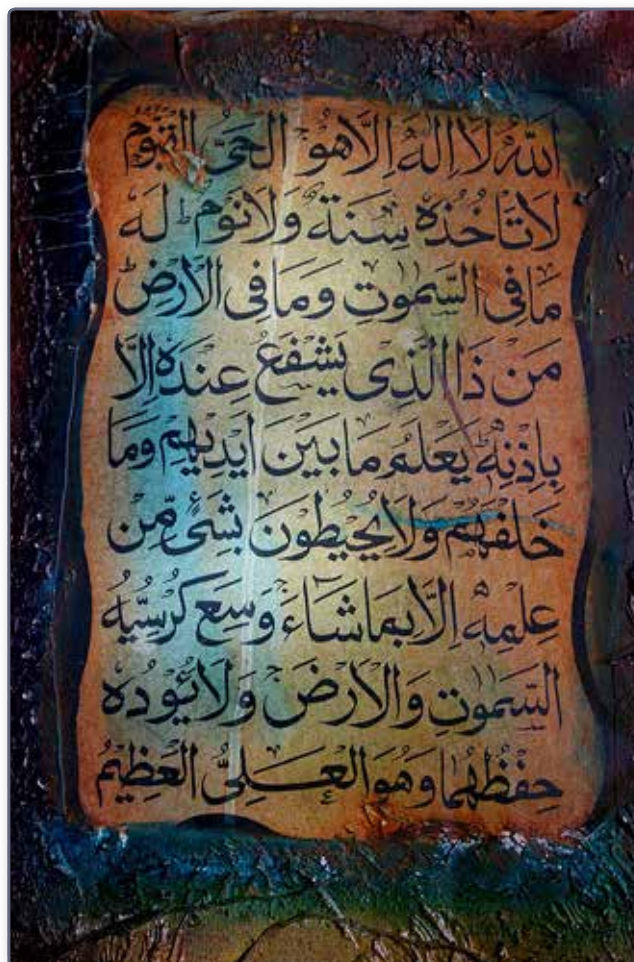 اَللّٰهُ لَا اِلٰهَ اِلَّا هُوَ الْحَیُّ الْقَیُّوْمُ
لَا تَاْخُذُهٗ سِنَةٌ وَّلَا نَوْمٌ ؕ لَهٗ
مَا فِی السَّمٰوٰتِ وَمَا فِی الْاَرْضِ ؕ
مَنْ ذَا الَّذِیْ یَشْفَعُ عِنْدَهٗۤ اِلَّا
بِاِذْنِهٖ ؕ یَعْلَمُ مَا بَیْنَ اَیْدِیْهِمْ وَمَا
خَلْفَهُمْ وَلَا یُحِیْطُوْنَ بِشَیْءٍ مِّنْ
عِلْمِهٖۤ اِلَّا بِمَا شَآءَ ۚ وَسِعَ كُرْسِیُّهُ
السَّمٰوٰتِ وَالْاَرْضَ ۚ وَلَا یَـُٔوْدُهٗ
حِفْظُهُمَا وَهُوَ الْعَلِیُّ الْعَظِیْمُ